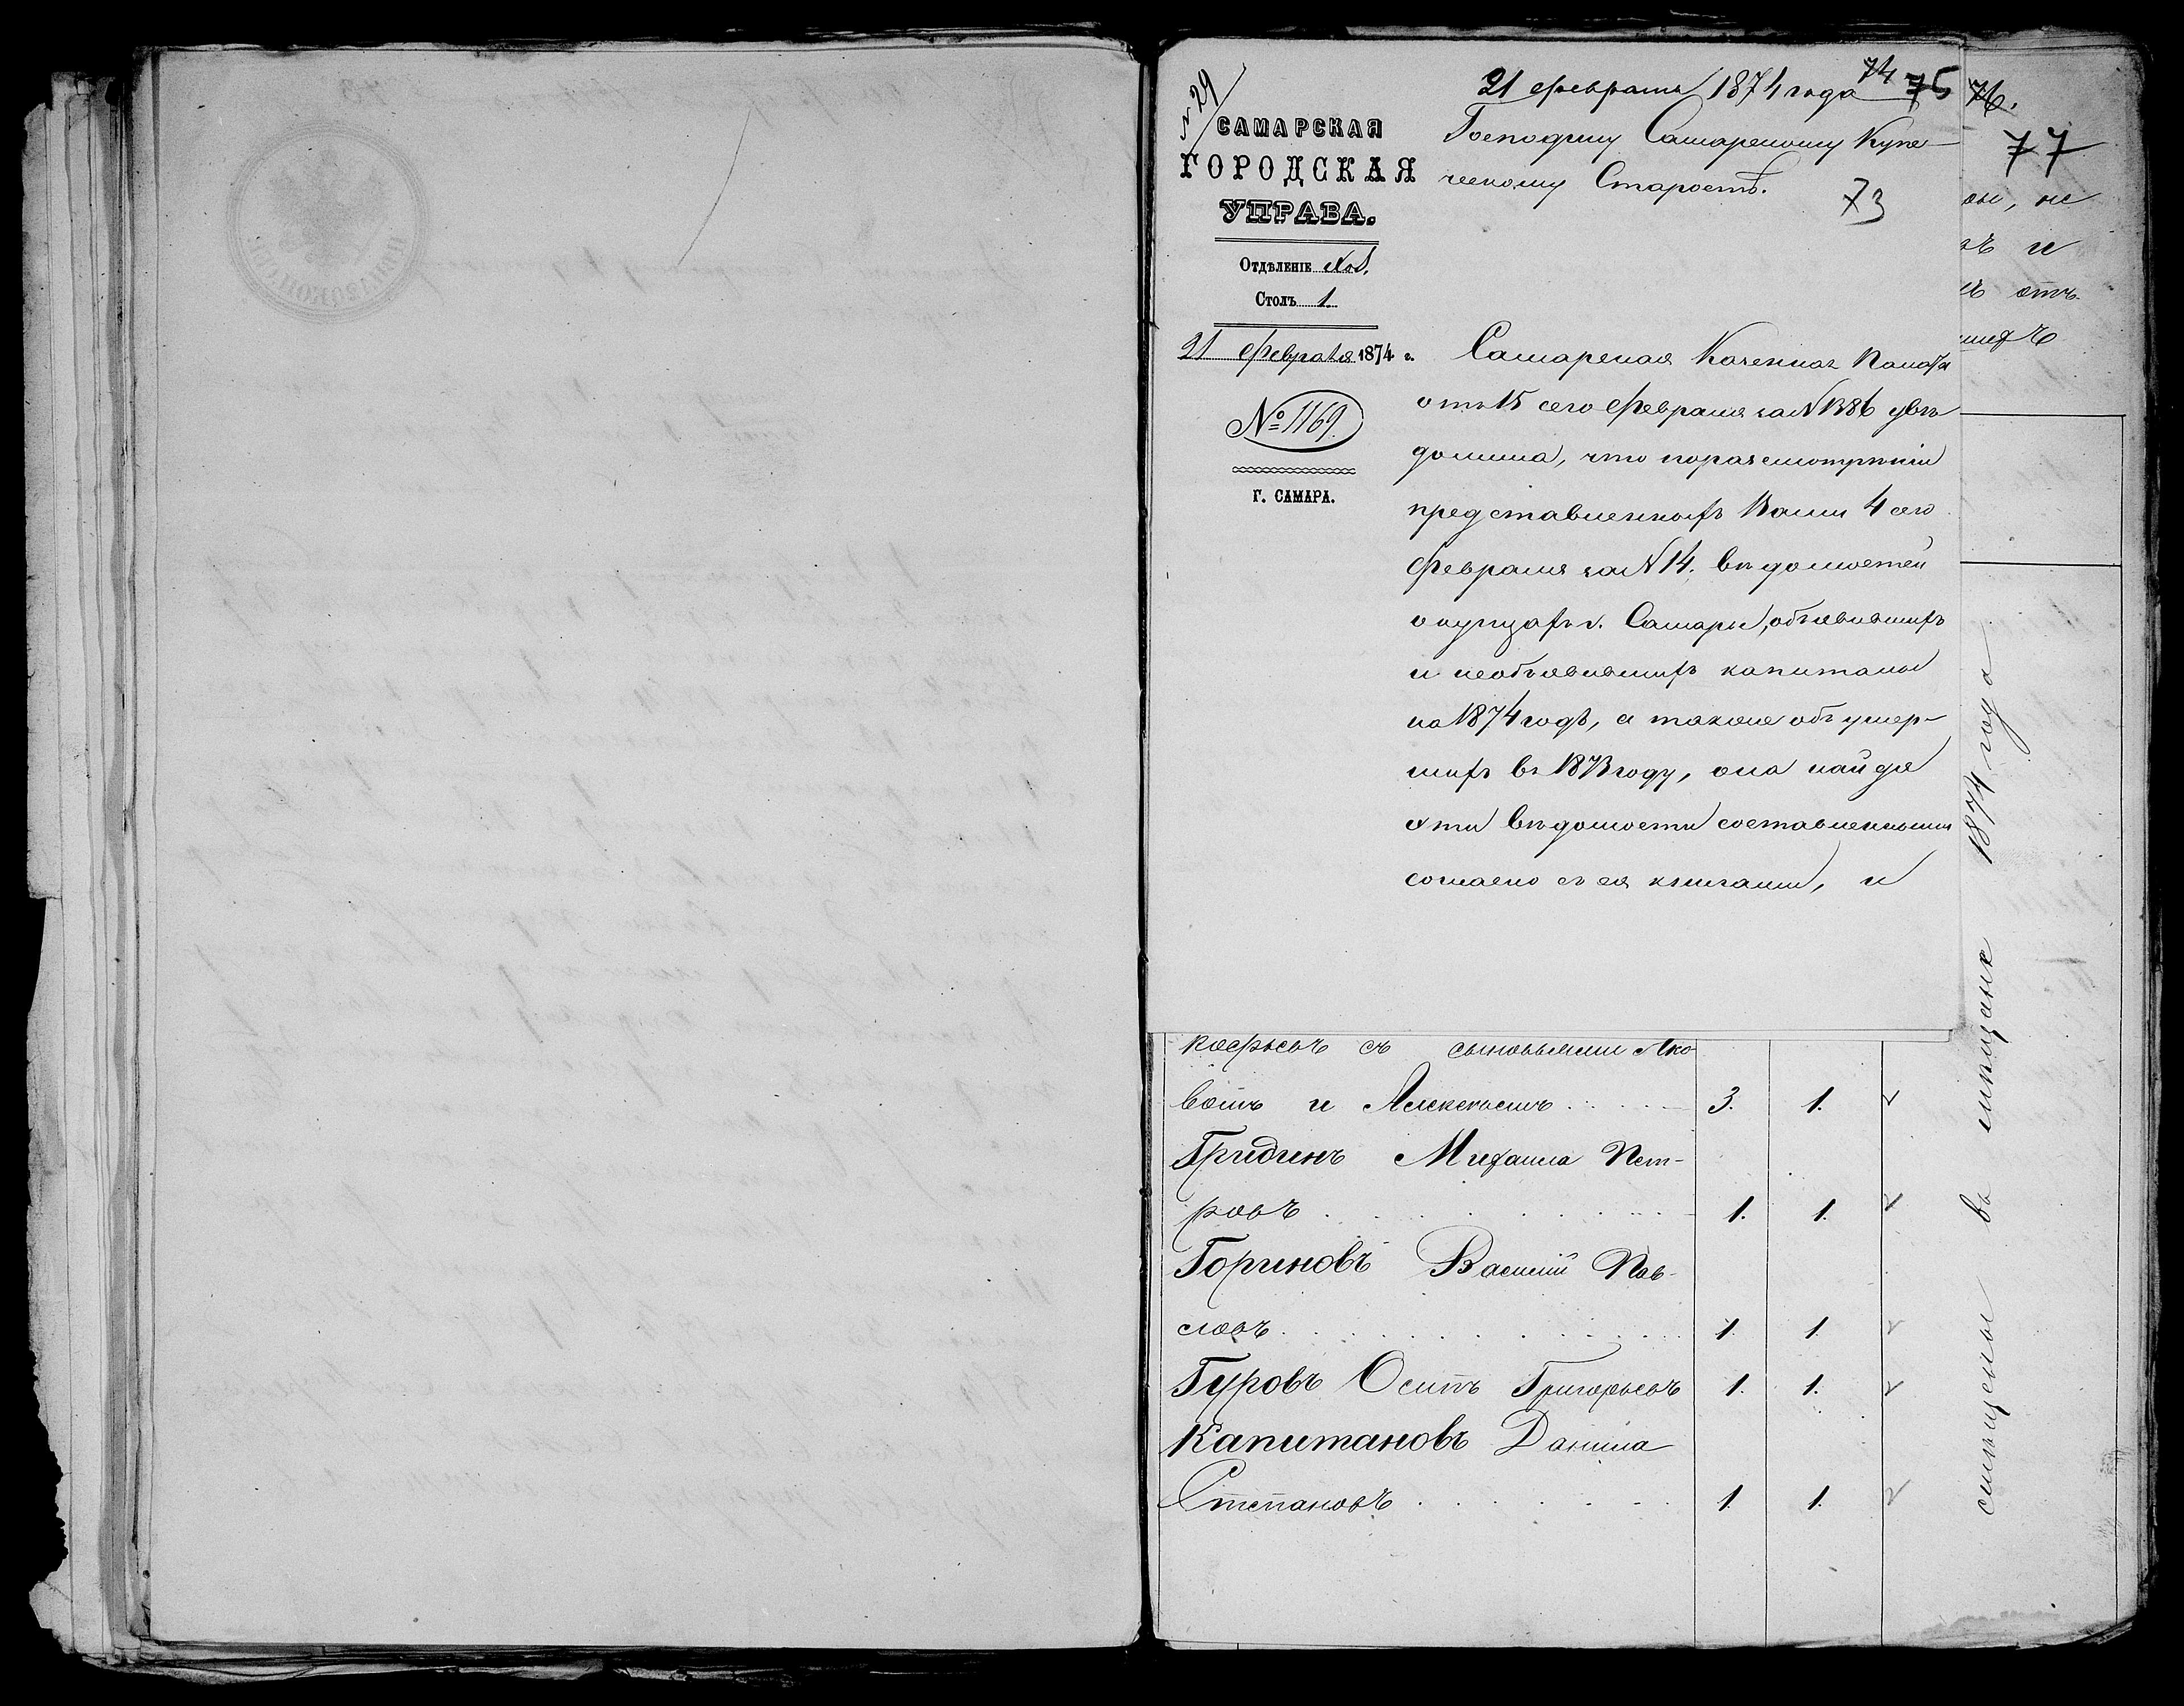 № 29
САМАРСКАЯ
ГОРОДСКАЯ
УПРАВА.
Отдѣленіе Хоз.
Столъ 1.
21 Февраля 1874 г.
№ 1169.
Г. САМАРА.
21 февраля 1874 года 74 75
Господину Самарскому Купе-
ческому Старостѣ.
73
Самарская Казенная Палата
отъ 15 сего Февраля за № 1386 увѣ
домила, что по разсмотрѣніи
представленныхъ Вами 4 сего
Февраля за № 14. вѣдомостей
о купцахъ г. Самары, объявившихъ
и необъявившихъ капиталы
на 1874 годъ, а также объ умер-
шихъ въ 1873 году, она найдя
эти вѣдомости составленными
согласно съ ея книгами, и
кофьевъ съ сыновьями Яко
вомъ и Алексѣемъ 3. 1.
Гридинъ Михаила Пет-
ровъ 1. 1.
Гориновъ Василій Пав-
ловъ 1. 1.
Гуровъ Осипъ Григорьевъ 1. 1.
Капитановъ Данила
Степановъ 1. 1.
76.
77
ъ и
отъ
въ мѣщане 1874 года